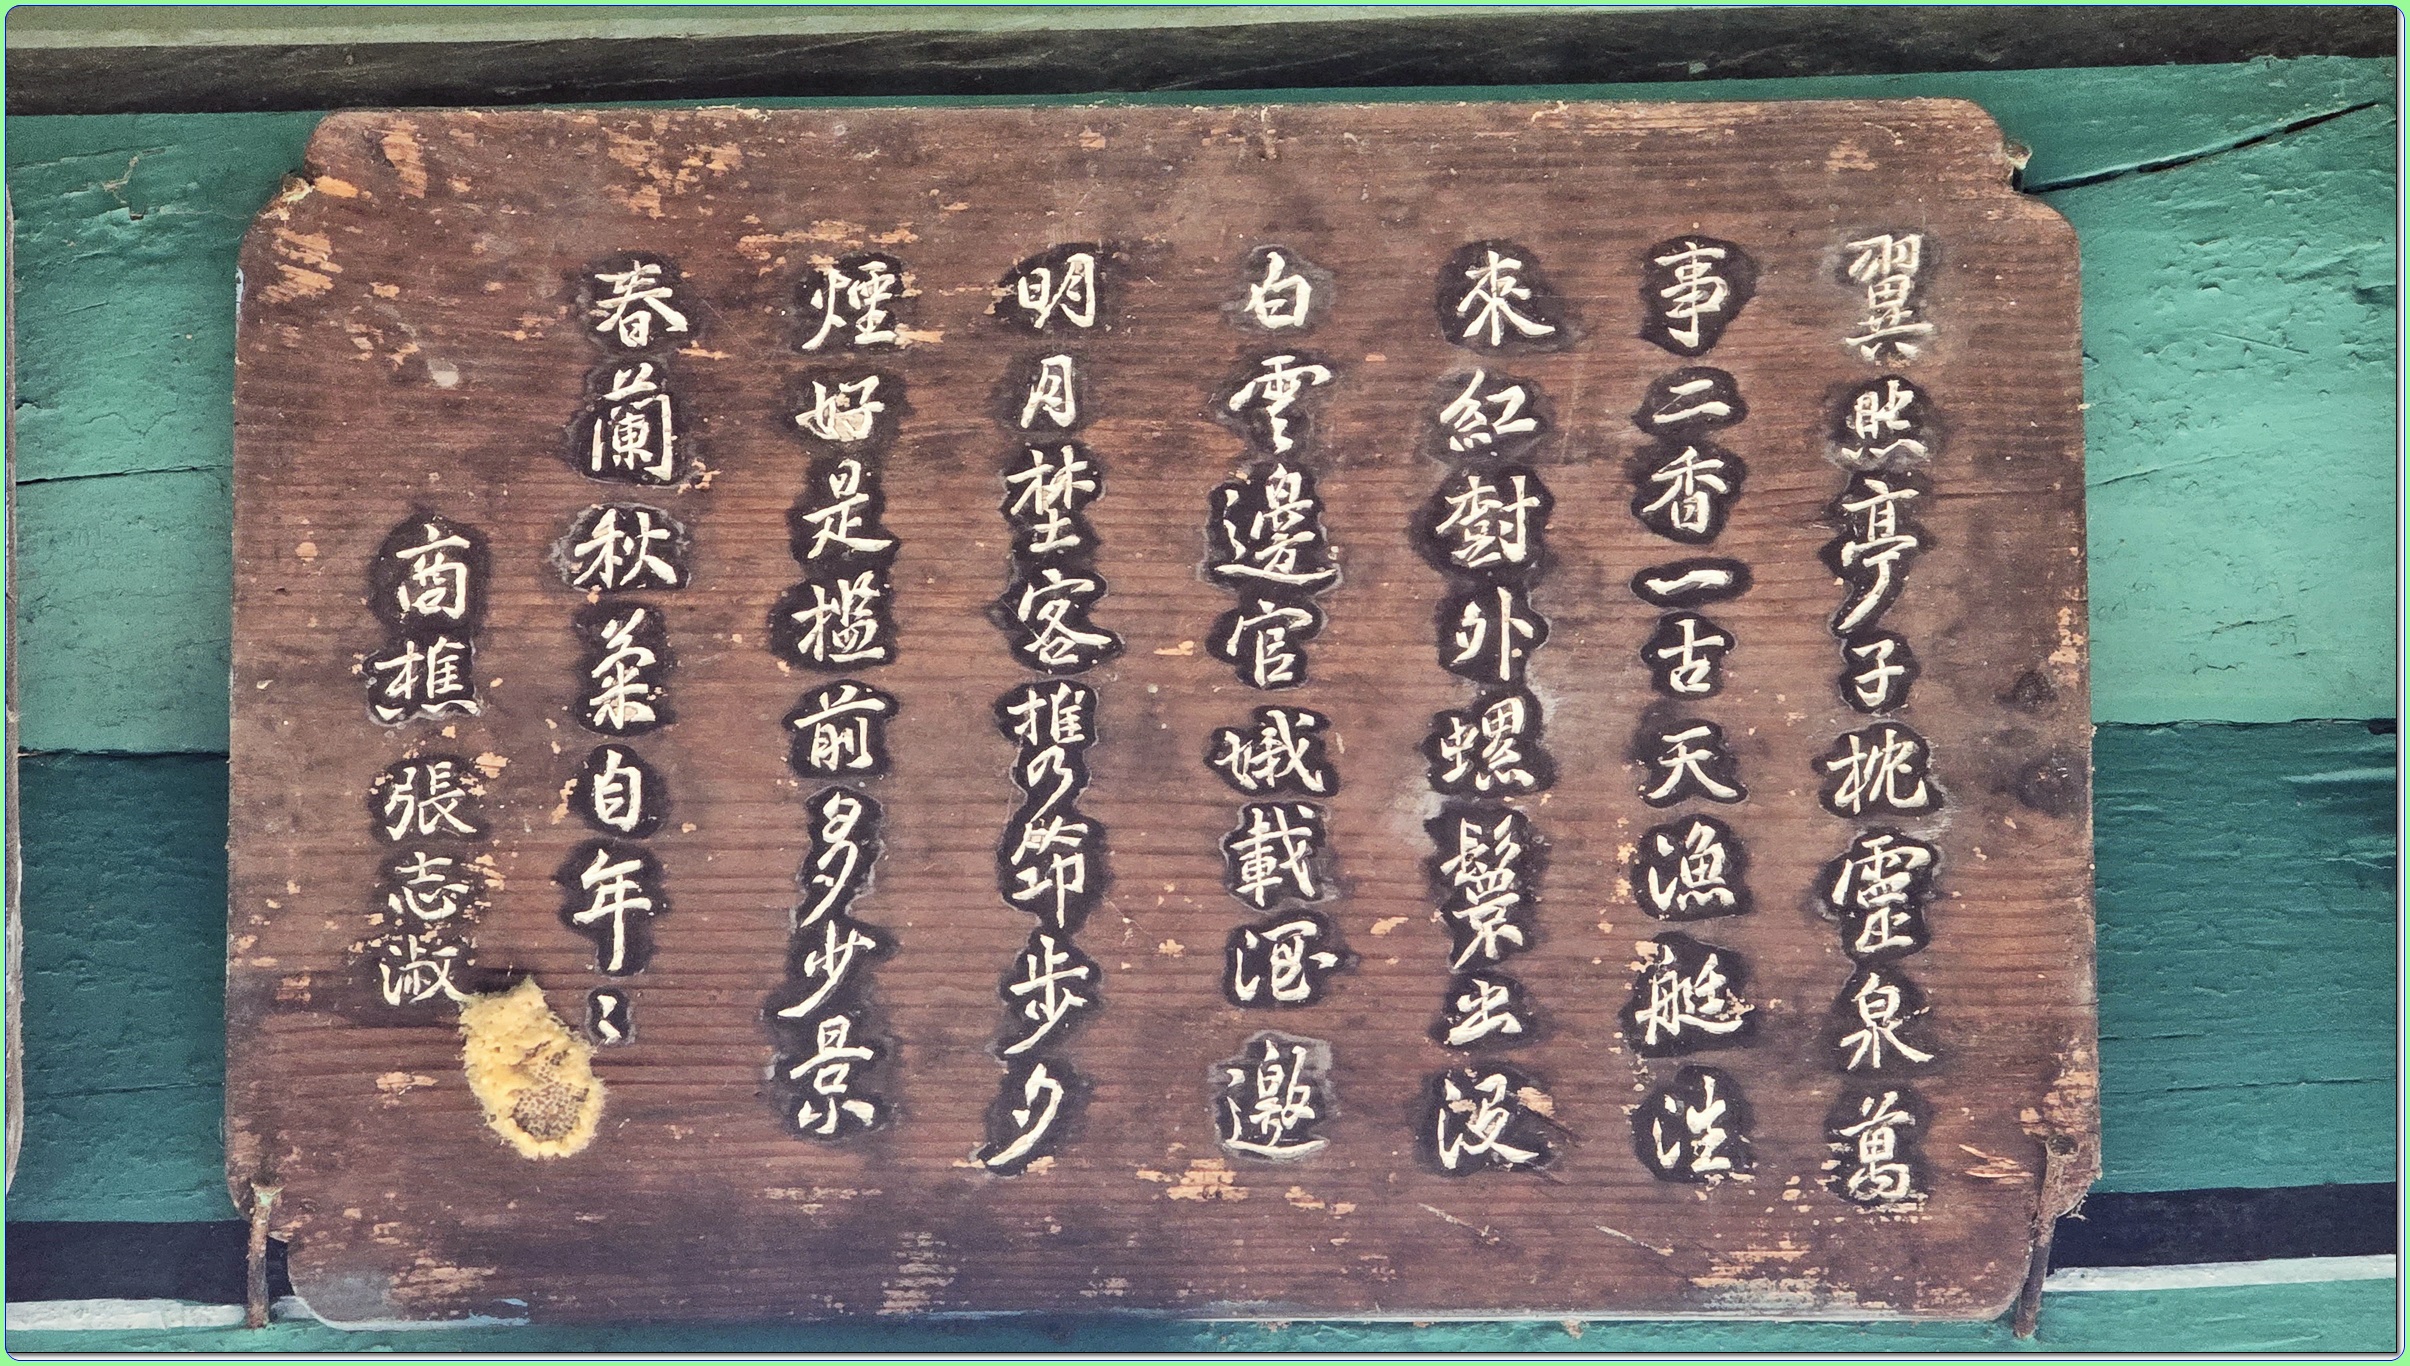 翼然亭子枕靈泉萬
事二香一古天漁艇往
來紅樹外螺鬟出沒
白雲邊官娥載酒邀
明月埜客携笻步夕
煙好是檻前多少景
春蘭秋菊自年〻
商樵張志淑